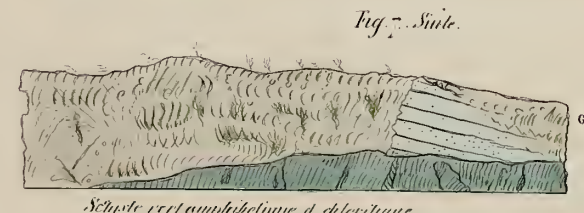 Fig. 7. Suite.
G
Schiste vert amphibolique & chloritique